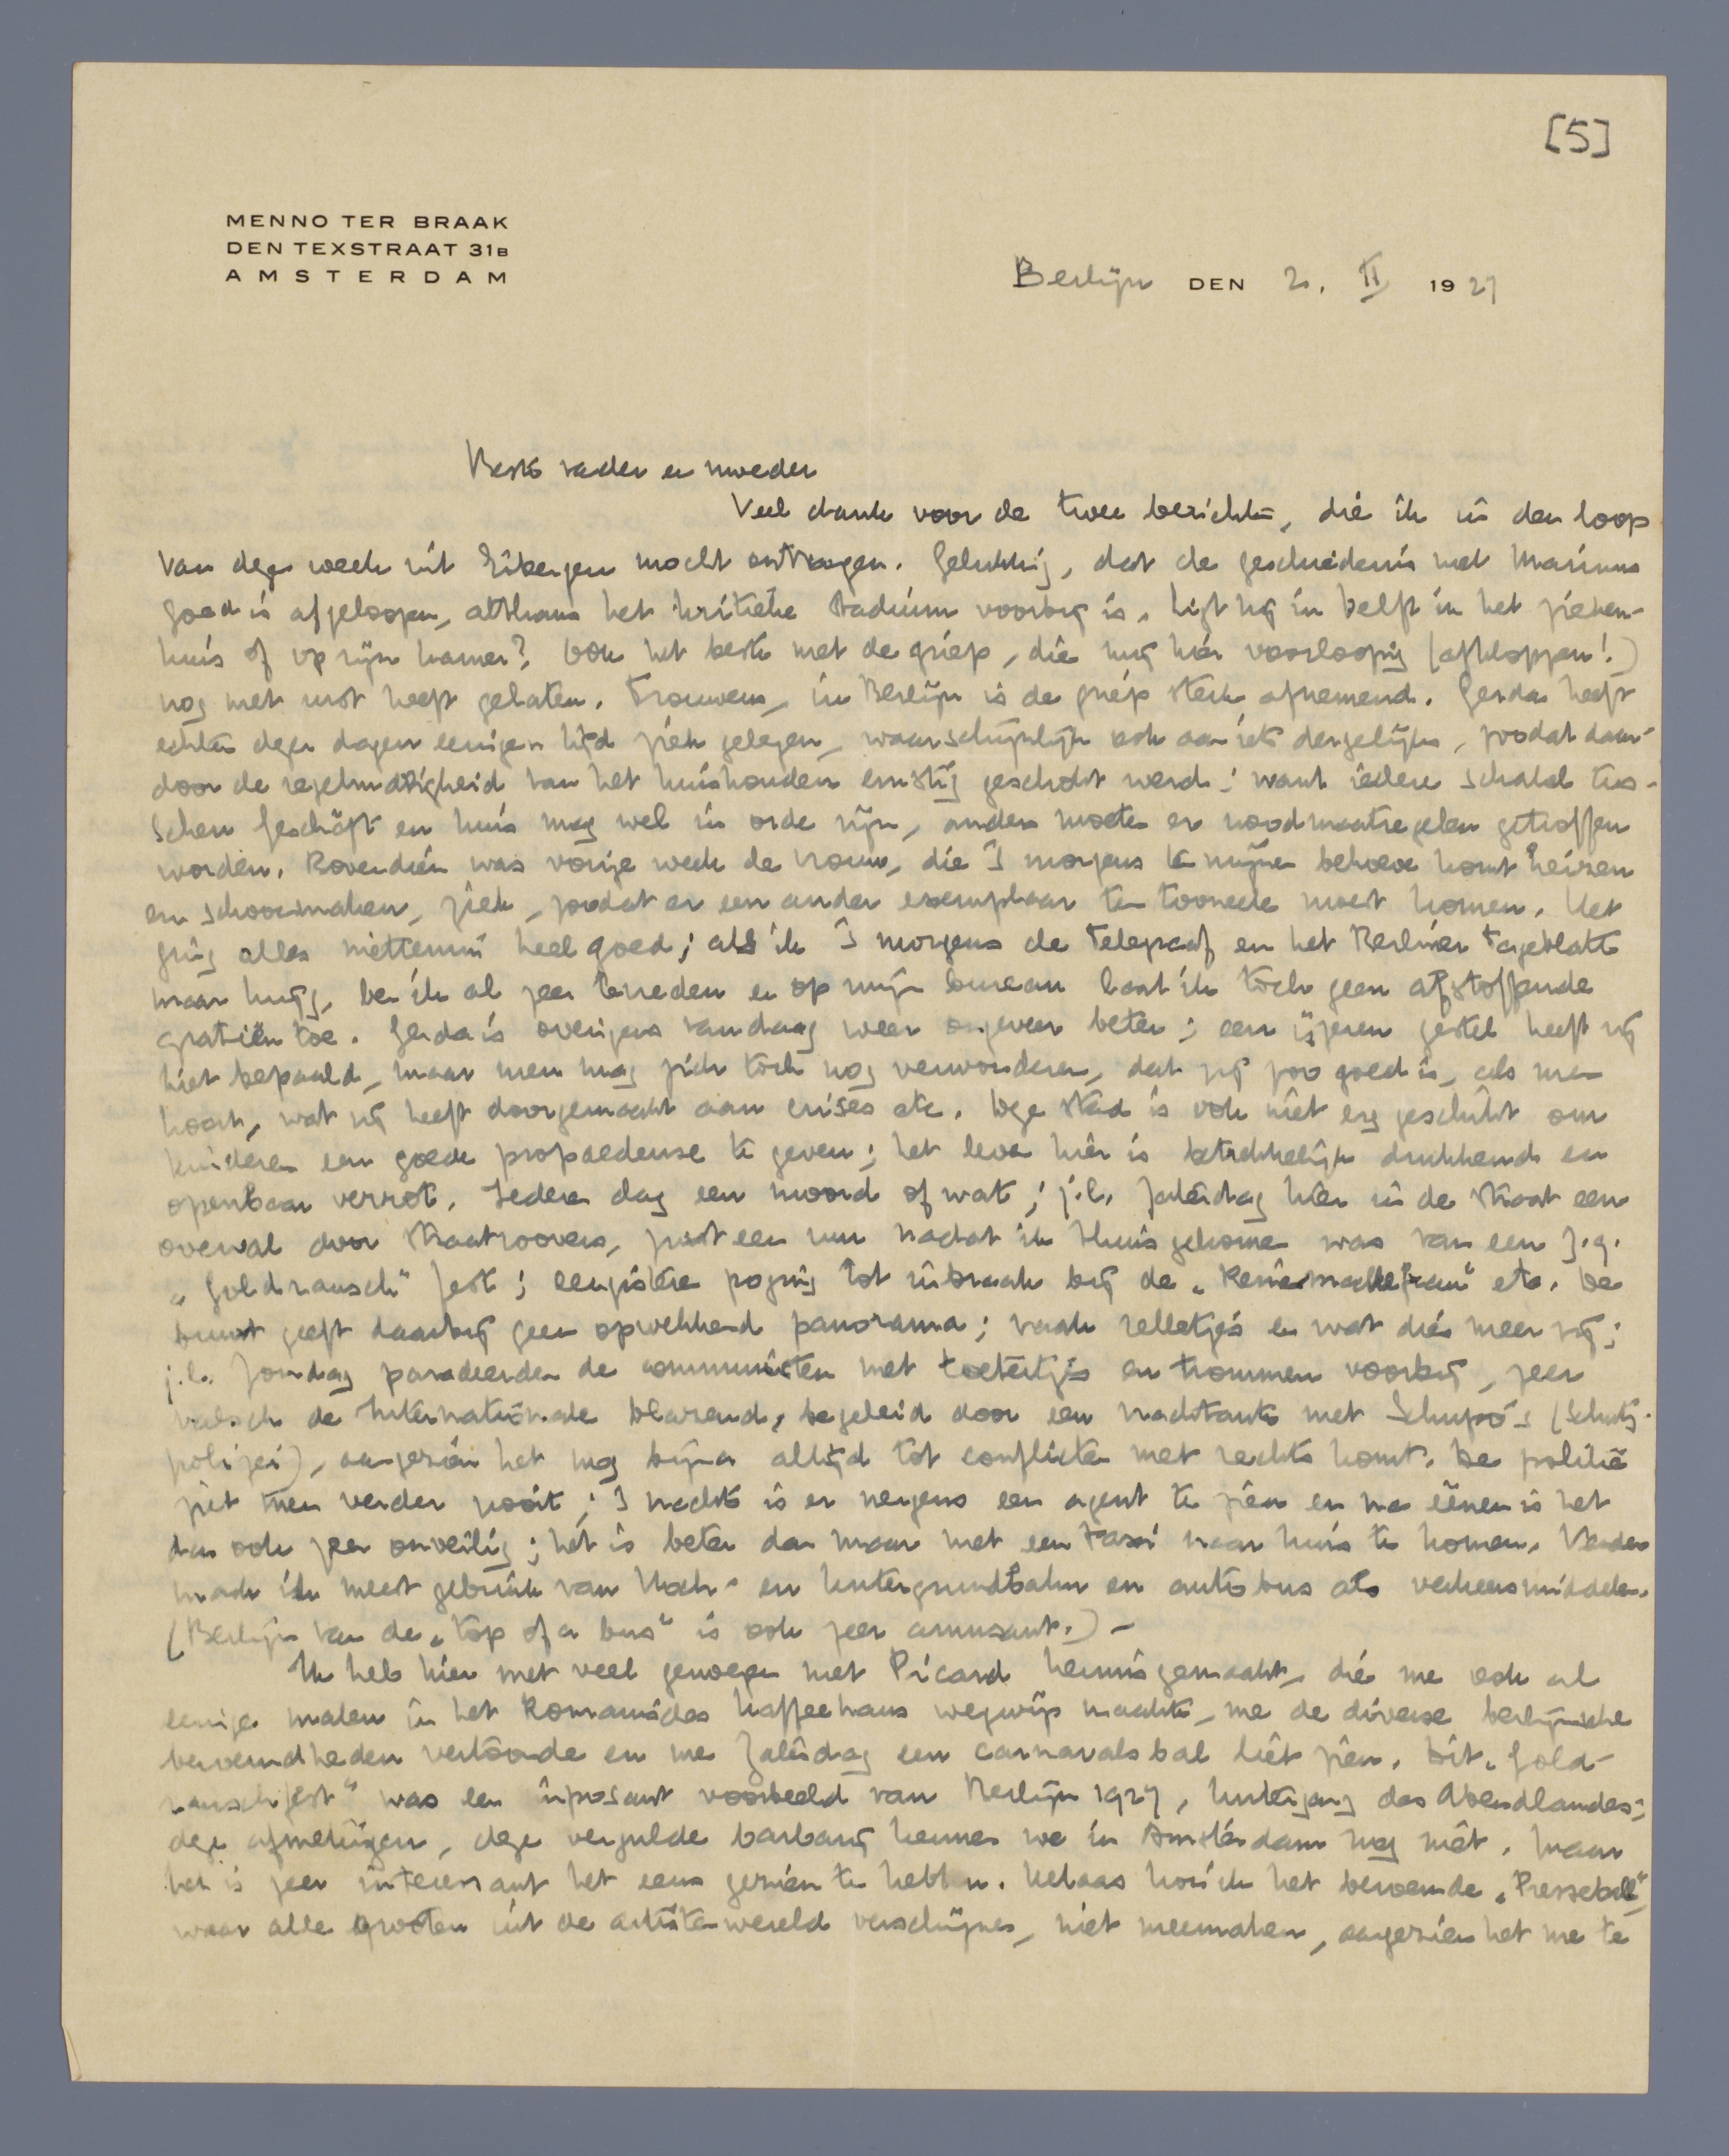 [5]
MENNO TER BRAAK
DEN TEXSTRAAT 31B
AMSTERDAM
Berlijn DEN 2. II 1927
Beste vader en moeder
Veel dank voor de twee berichten, die ik in den loop
van deze week uit Eibergen mocht ontvangen. Gelukkig, dat de geschiedenis met Marinus
goed is afgeloopen, althans het kritieke stadium voorbij is. Ligt hij in Delft in het zieken-
huis of op zijn kamer? Ook het beste met de griep, die mij hier voorloopig (afkloppen!)
nog met rust heeft gelaten. Trouwens, in Berlijn is de griep sterk afnemend. Gerda heeft
echter dezer dagen eenigen tijd ziek gelegen, waarschijnlijk ook aan iets dergelijks, zoodat daar-
door de regelmatigheid van het huishouden ernstig geschokt werd; want iedere schakel tus-
schen Geschäft en huis mag wel in orde zijn, anders moeten er noodmaatregelen getroffen
worden. Bovendien was vorige week de vrouw, die 's morgens te mijnen behoeve komt heizen
en schoonmaken, ziek, zoodat er een ander exemplaar ten tooneele moest komen. Het
ging alles niettemin heel goed; als ik 's morgens de Telegraaf en het Berliner Tageblatt
maar krijg, ben ik al zeer tevreden en op mijn bureau laat ik toch geen afstoffende
gratiën toe. Gerda is overigens vandaag weer ongeveer beter; een ijzeren gestel heeft zij
niet bepaald, maar men mag zich toch nog verwonderen, dat zij zoo goed is, als men
hoort, wat zij heeft doorgemaakt aan crises etc. Deze stad is ook niet erg geschikt om
kinderen een goede propaedeuse te geven; het leven hier is betrekkelijk drukkend en
openbaar verrot. Iedere dag een moord of wat; j.l. Zaterdag hier in de straat een
overval door straatroovers, juist een uur nadat ik thuisgekomen was van een z.g.
„Goldrausch" fest; eergisteren poging tot inbraak bij de „Reinemachefrau" etc. De
buurt geeft daarbij geen opwekkend panorama; vaak relletjes en wat dies meer zij;
j.l. Zondag paradeerden de communisten met toetertjes en trommen voorbij, zeer
valsch de Internationale blarend, begeleid door een vrachtauto met Schupo's (Schutz-
polizei), aangezien het nog bijna altijd tot conflicten met rechts komt. De politie
ziet men verder nooit; 's nachts is er nergens een agent te zien en na eenen is het
dan ook zeer onveilig; het is beter dan maar met een taxi naar huis te komen. Verder
maak ik meest gebruik van Hoch- en Untergrundbahn en autobus als verkeersmiddelen.
(Berlijn van de „top of a bus" is ook zeer amusant.) –
Ik heb hier met veel genoegen met Picard kennisgemaakt, die me ook al
eenige malen in het Romanisches Kaffeehaus wegwijs maakte, me de diverse berlijnsche
beroemdheden vertoonde en me Zaterdag een carnavalsbal liet zien. Dit „Gold-
rauschfest" was een imposant voorbeeld van Berlijn 1927, Untergang des Abendlandes;
deze afmetingen, deze vergulde barbarij kennen we in Amsterdam nog niet. Maar
het is zeer interessant het eens gezien te hebben. Helaas kon ik het beroemde „Presseball",
waar alle grooten uit de artistenwereld verschijnen, niet meemaken, aangezien het me te